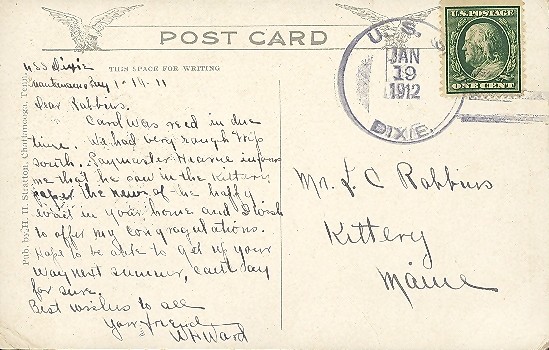 POST CARD
THIS SPACE FOR WRITING
USS Dixie
Guantanamo Bay 1-19-11
Dear Robbins.
Card was recd in due
time. We had very rough trip
south. Paymaster Hearne informs
me that he saw in the Kittery
paper the news of the happy
event in your home and I wish
to offer my congratulations.
Hope to be able to get up your
way next summer, can't say
for sure.
Best wishes to all
Your friend
WH Ward
Pub. by H. H. Stratton, Chattanooga, Tenn.
U.S.S.
JAN
19
1912
DIXIE.
U.S. POSTAGE
ONE CENT
Mr. L. C Robbins
Kittery
Maine